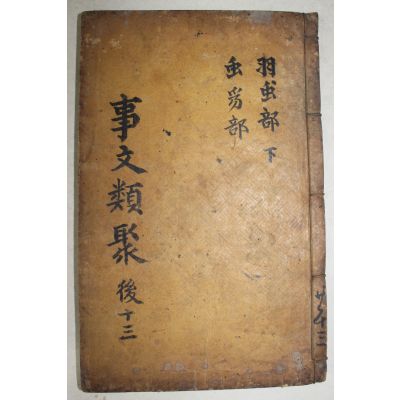 羽䖝部 下
䖝豸部
事文類聚 後十三